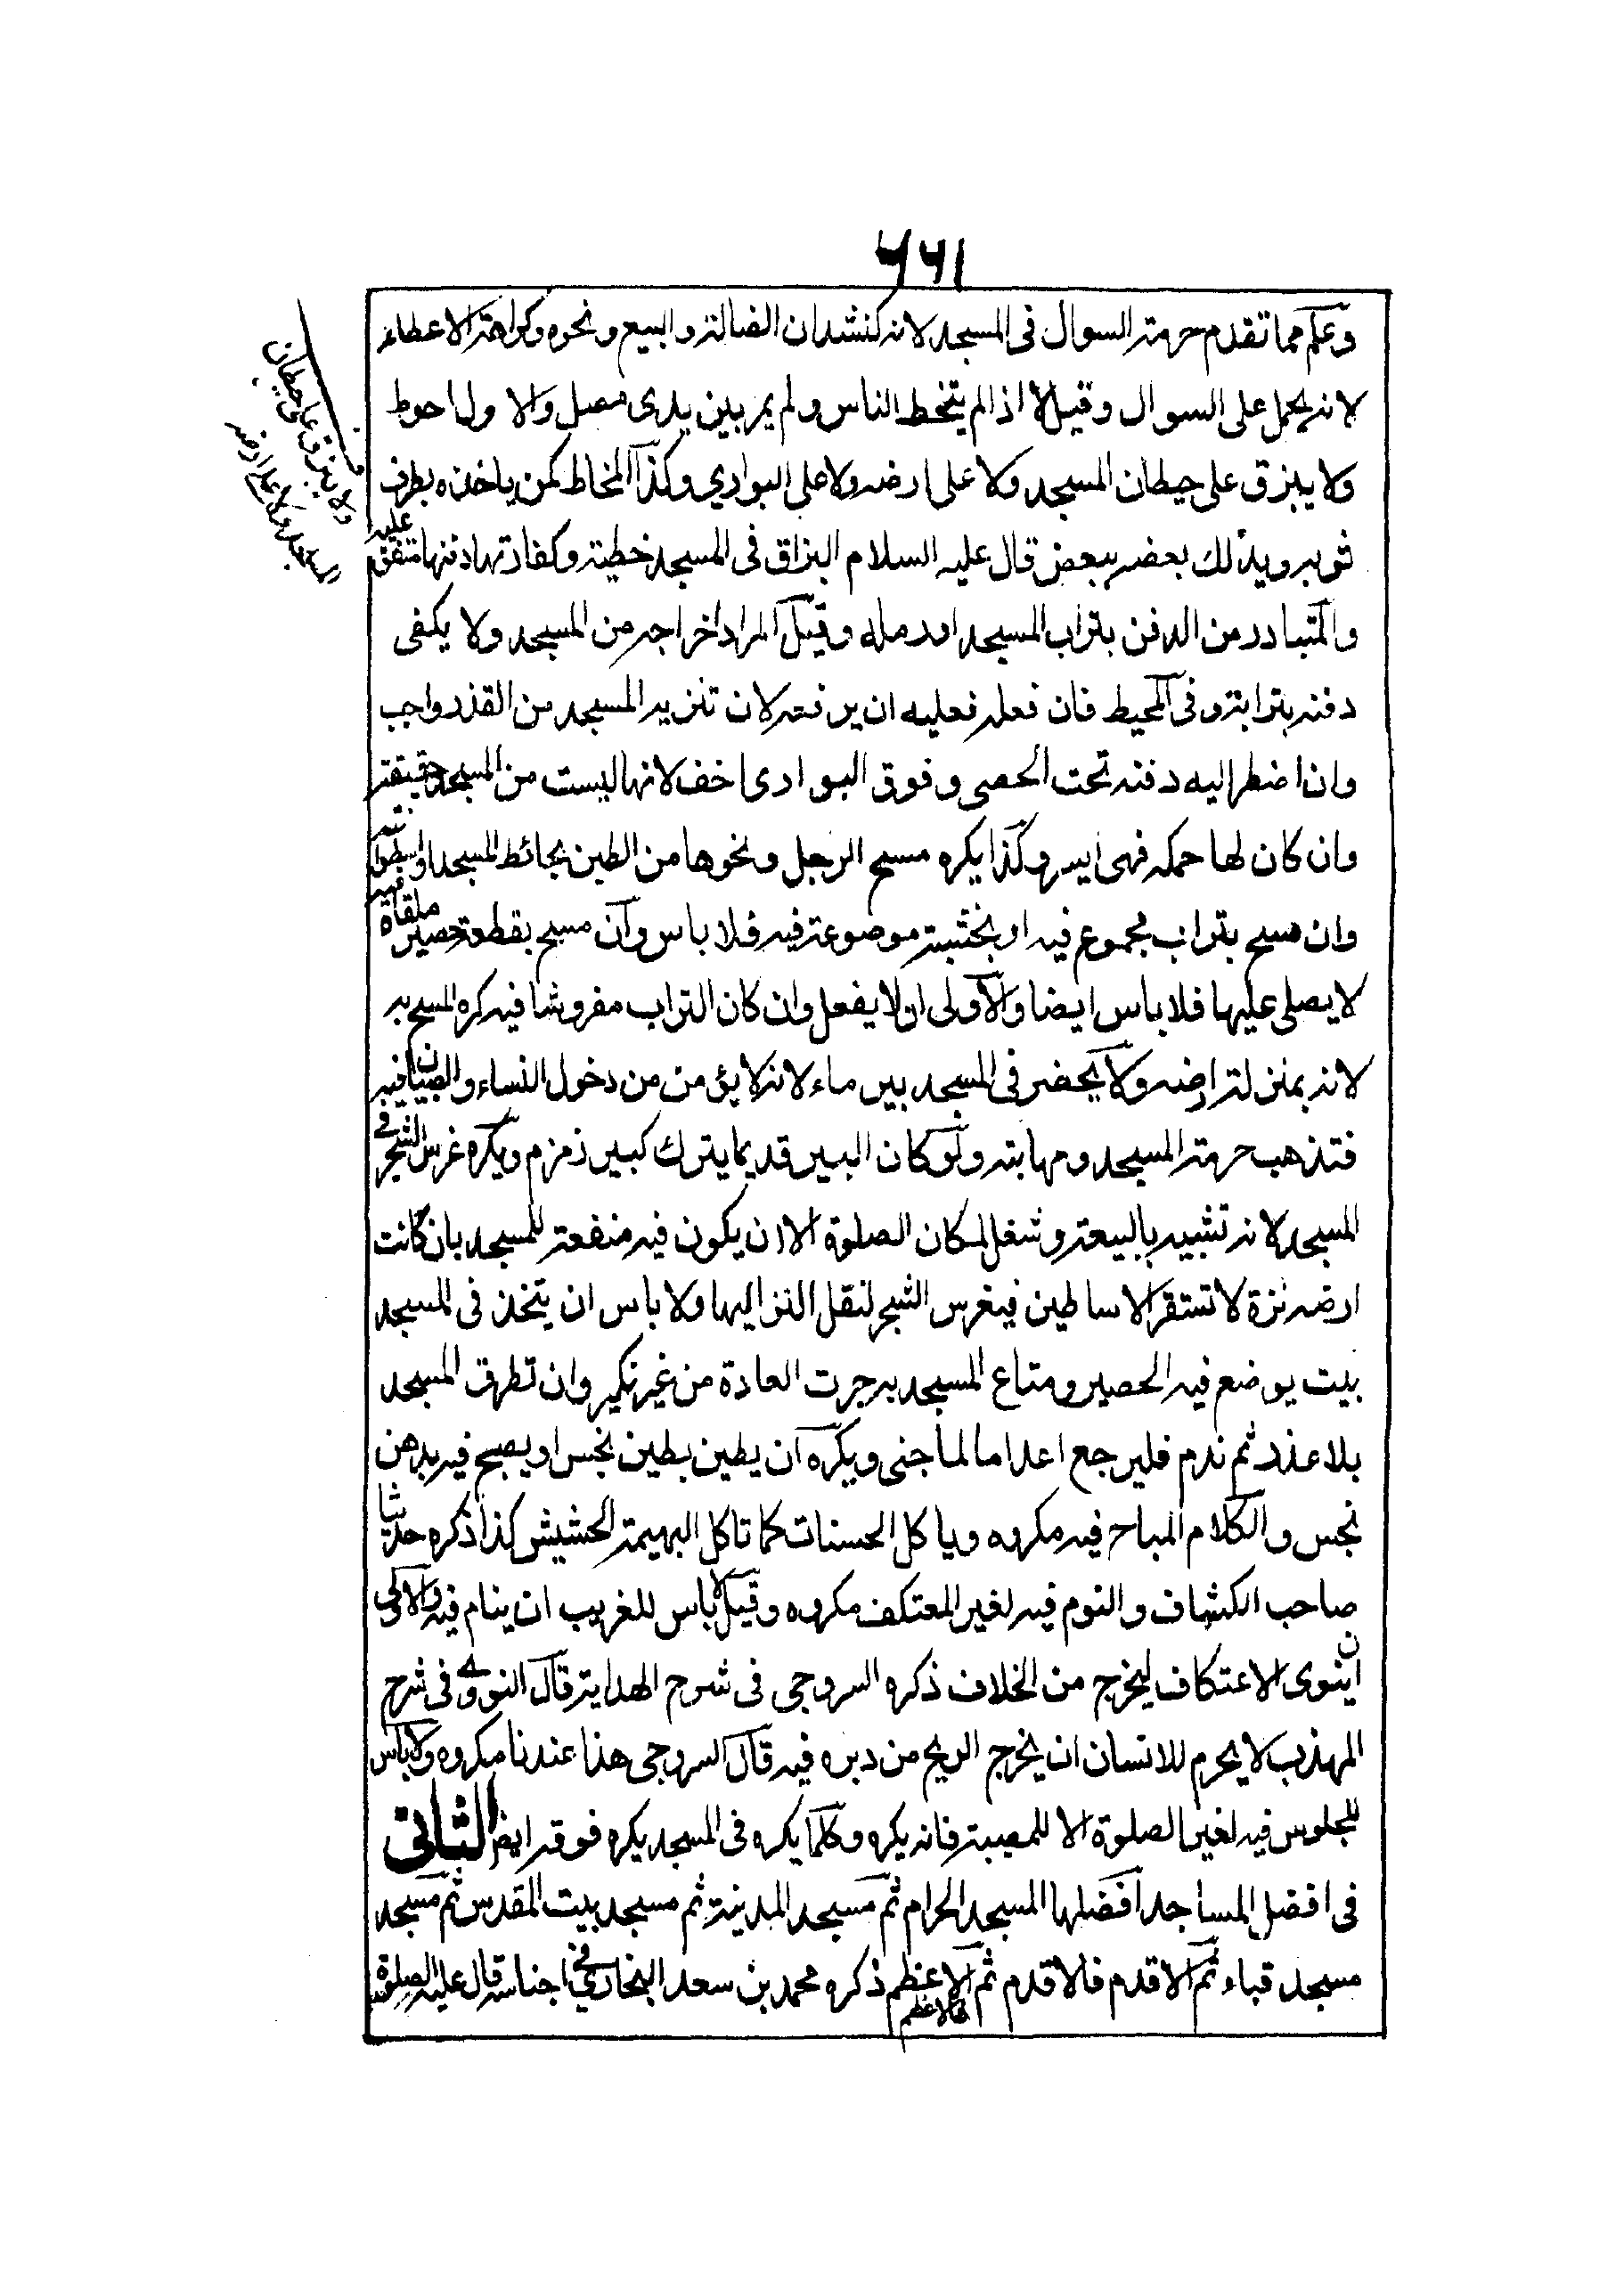 ٦٦١
وعلم مما تقدم حرمة السوال فى المسجد لانه كنشدان الضالة والبيع ونحوه وكراهة الاعطاء
لانه يحمل على السوال وقيل لا اذا لم يتخط الناس ولم يمر بين يدى مصل والاول احوط
ولا يبزق على حيطان المسجد ولا على ارضه ولا على البواري وكذا المخاط لكن ياخذه بطرف
ثوبه ويدلك بعضه ببعض قال عليه السلام البزاق فى المسجد خطيئة وكفارتها دفنها متفق عليه
والمتبادر من الدفن بتراب المسجد او رمله وقيل المراد اخراجه من المسجد ولا يكفى
دفنه بترابه وفى المحيط فان فعله فعليه ان يرفعه لان تنزيه المسجد من القذر واجب
وان اضطر اليه دفنه تحت الحصى وفوق البوارى اخف لانها ليست من المسجد حقيقة
وان كان لها حكمه فهى ايسر وكذا يكره مسح الرجل ونحوها من الطين بحائط المسجد او اسطوانته
وان مسح بتراب مجموع فيه او بخشبة موضوعة فيه فلا باس وان مسح بقطعة حصير ملقاة فيه
لا يصلى عليها فلا باس ايضا والاولى ان لا يفعل وان كان التراب مفروشا فيه كره المسح به
لانه بمنزلة ارضه ولا يحضر فى المسجد بير ماء لانه لا يؤمن من دخول النساء والصبيان فيه
فتذهب حرمة المسجد ومهابته ولو كان البير قديما يترك كبير زمزم ويكره غرس الشجر فى
المسجد لانه تشبيه بالبيعة وشغل لمكان الصلوة الا ان يكون فيه منفعة للمسجد بان كانت
ارضه نزة لا تستقر الاساطين فيغرس الشجر لنقل النز اليها ولا باس ان يتخذ فى المسجد
بيت يوضع فيه الحصير ومتاع المسجد به جرت العادة من غير نكير وان تطرق المسجد
بلا عذر ثم ندم فليرجع اعداما لما جنى ويكره ان يطين بطين نجس او يصبح فيه بدهن
نجس والكلام المباح فيه مكروه وياكل الحسنات كما تاكل البهيمة الحشيش كذا ذكره حديثا
صاحب الكشاف والنوم فيه لغير المعتكف مكروه وقيل لا باس للغريب ان ينام فيه والاولى
ان ينوى الاعتكاف ليخرج من الخلاف ذكره السروجى فى شرح الهداية قال النووى فى شرح
المهذب لا يحرم للانسان ان يخرج الريح من دبره فيه قال السروجى هذا عندنا مكروه ولا باس
للجلوس فيه لغير الصلوة الا للمصيبة فانه يكره وكلما يكره فى المسجد يكره فوقه ايضا الثانى
فى افضل المساجد افضلها المسجد الحرام ثم مسجد المدينة ثم مسجد بيت المقدس ثم مسجد
مسجد قباء ثم الاقدم فالاقدم ثم الاعظم فالاعظم ذكره محمد بن سعد البخاري فى اجناسه قال عليه الصلوة
ولا يبزق على حيطان
المسجد ولا على ارضه